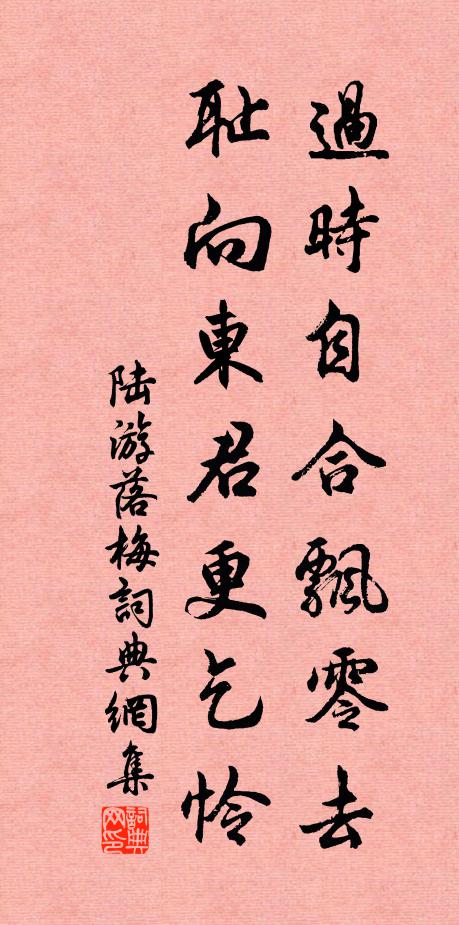 過時自合飄零去
耻向東君更乞怜
陆游落梅詞典網集
詞典网印